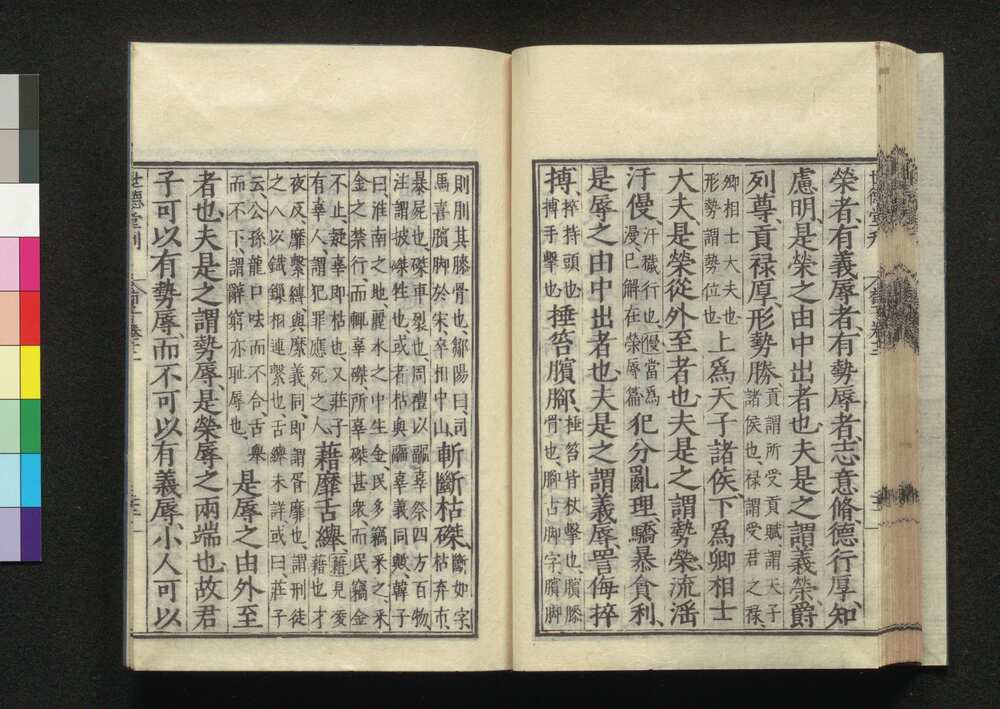 榮者、有義辱者、有勢辱者、志意脩、德行厚、知
慮明、是榮之由中出者也、夫是之謂義榮、爵
列尊、貢祿厚、形勢勝、貢謂所受貢賦謂天子諸侯也、祿謂受君之祿、
卿相士大夫也形勢謂勢位也上爲天子諸侯、下爲卿相士
大夫、是榮從外至者也、夫是之謂勢榮、流淫
汙僈、汙穢行也、僈當爲漫、已解在榮辱篇犯分亂理、驕暴貪利、
是辱之由中出者也、夫是之謂義辱、詈侮捽
搏、捽持頭也搏手擊也捶笞臏腳、捶笞皆杖擊也、臏膝骨也、腳古脚字、臏脚
則刖其膝骨也、鄒陽曰、司馬喜臏脚於宋、卒相中山、斬斷枯磔、斷如字、枯弃市
暴屍也、磔車裂也、周禮以疈辜祭四方百物、注謂披磔牲也、或者枯與疈辜義同歟、韓子
曰、淮南之地、麗水之中生金、民多竊采之、采金之禁、行而輒辜磔、所辜磔甚衆、而民竊金
不止、疑辜即枯也、又莊子有辜人、謂犯罪應死之人藉靡舌纋、藉見凌藉也、才
夜反、靡繫縛、與縻義同、即謂胥靡也、謂刑徒之人以鐵鎖相連繫也、舌纋未詳、或曰、莊子
云、公孫龍口呿而不合、舌舉而不下、謂辭窮亦耻辱也、是辱之由外至
者也、夫是之謂勢辱、是榮辱之兩端也、故君
子可以有勢辱、而不可以有義辱、小人可以
世德堂刊